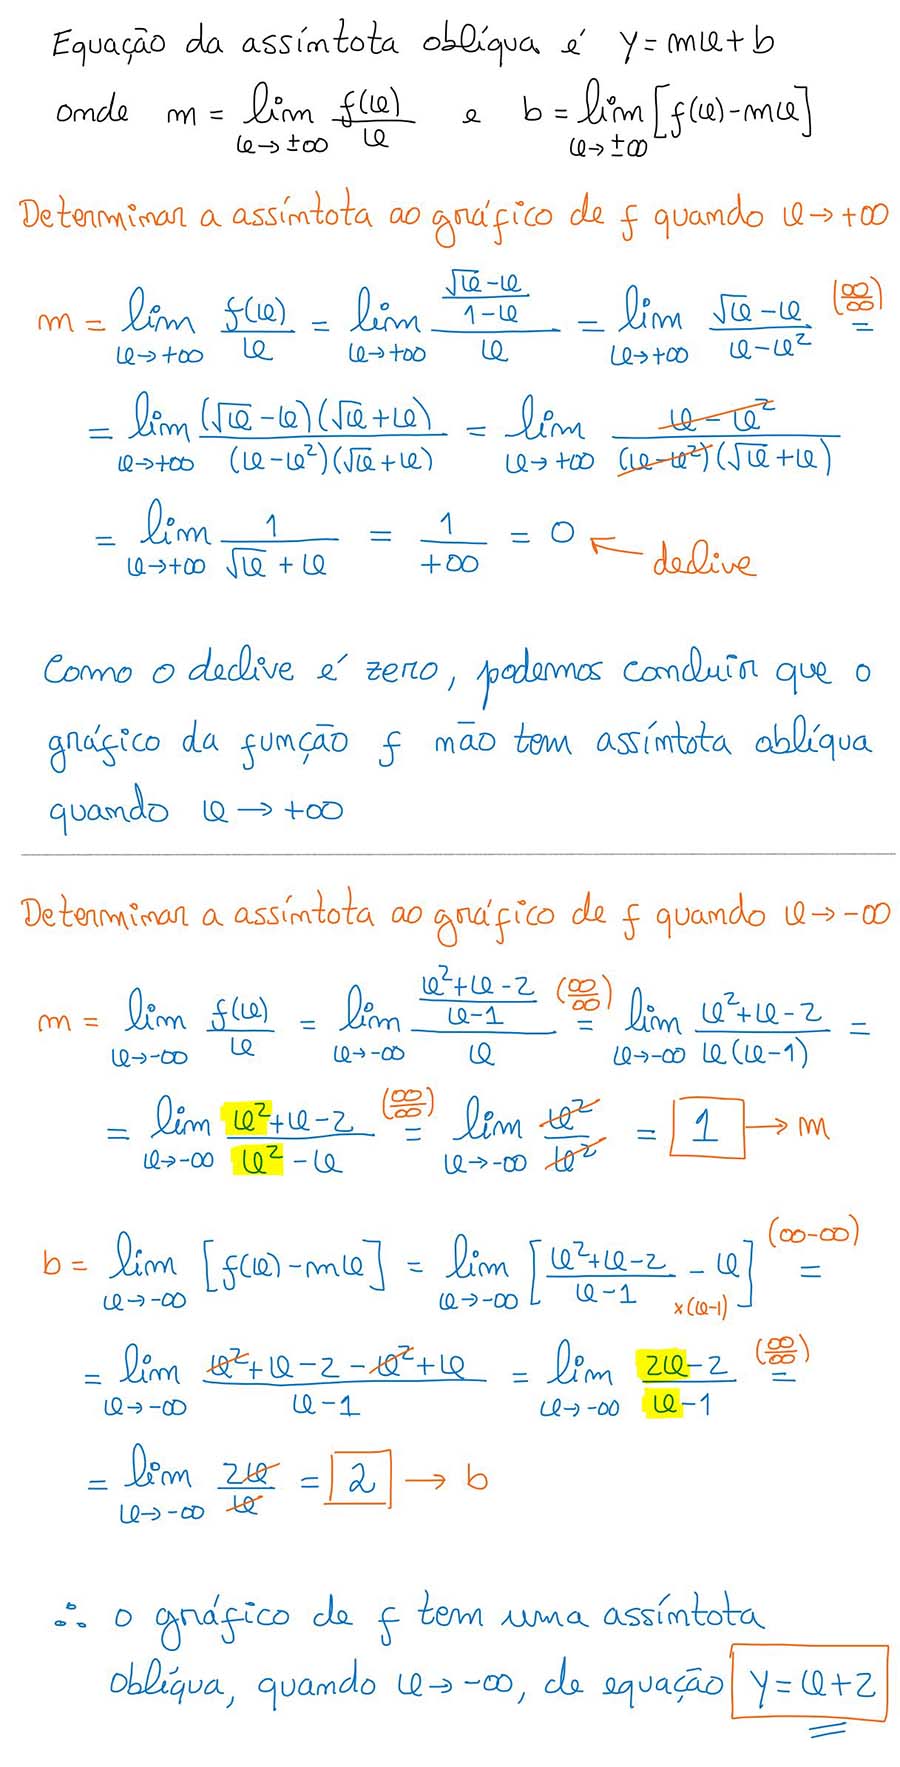 Equação da assíntota oblíqua é y = mx + b
onde m = lim x→±∞ f(x)/x e b = lim x→±∞ [f(x) - mx]
Determinar a assíntota ao gráfico de f quando x → +∞
m = lim x→+∞ f(x)/x = lim x→+∞ ((√x - x)/(1 - x))/x = lim x→+∞ (√x - x)/(x - x²) (∞/∞) =
= lim x→+∞ (√x - x)(√x + x)/((x - x²)(√x + x)) = lim x→+∞ (x - x²)/((x - x²)(√x + x))
= lim x→+∞ 1/(√x + x) = 1/+∞ = 0 ← declive
Como o declive é zero, podemos concluir que o
gráfico da função f não tem assíntota oblíqua
quando x → +∞
Determinar a assíntota ao gráfico de f quando x → -∞
m = lim x→-∞ f(x)/x = lim x→-∞ ((x² + x - 2)/(x - 1))/x (∞/∞) = lim x→-∞ (x² + x - 2)/(x(x - 1)) =
= lim x→-∞ (x² + x - 2)/(x² - x) (∞/∞) = lim x→-∞ x²/x² = 1 → m
b = lim x→-∞ [f(x) - mx] = lim x→-∞ [(x² + x - 2)/(x - 1) - x ×(x-1)] (∞-∞) =
= lim x→-∞ (x² + x - 2 - x² + x)/(x - 1) = lim x→-∞ (2x - 2)/(x - 1) (∞/∞) =
= lim x→-∞ 2x/x = 2 → b
∴ o gráfico de f tem uma assíntota
oblíqua, quando x → -∞, de equação y = x + 2